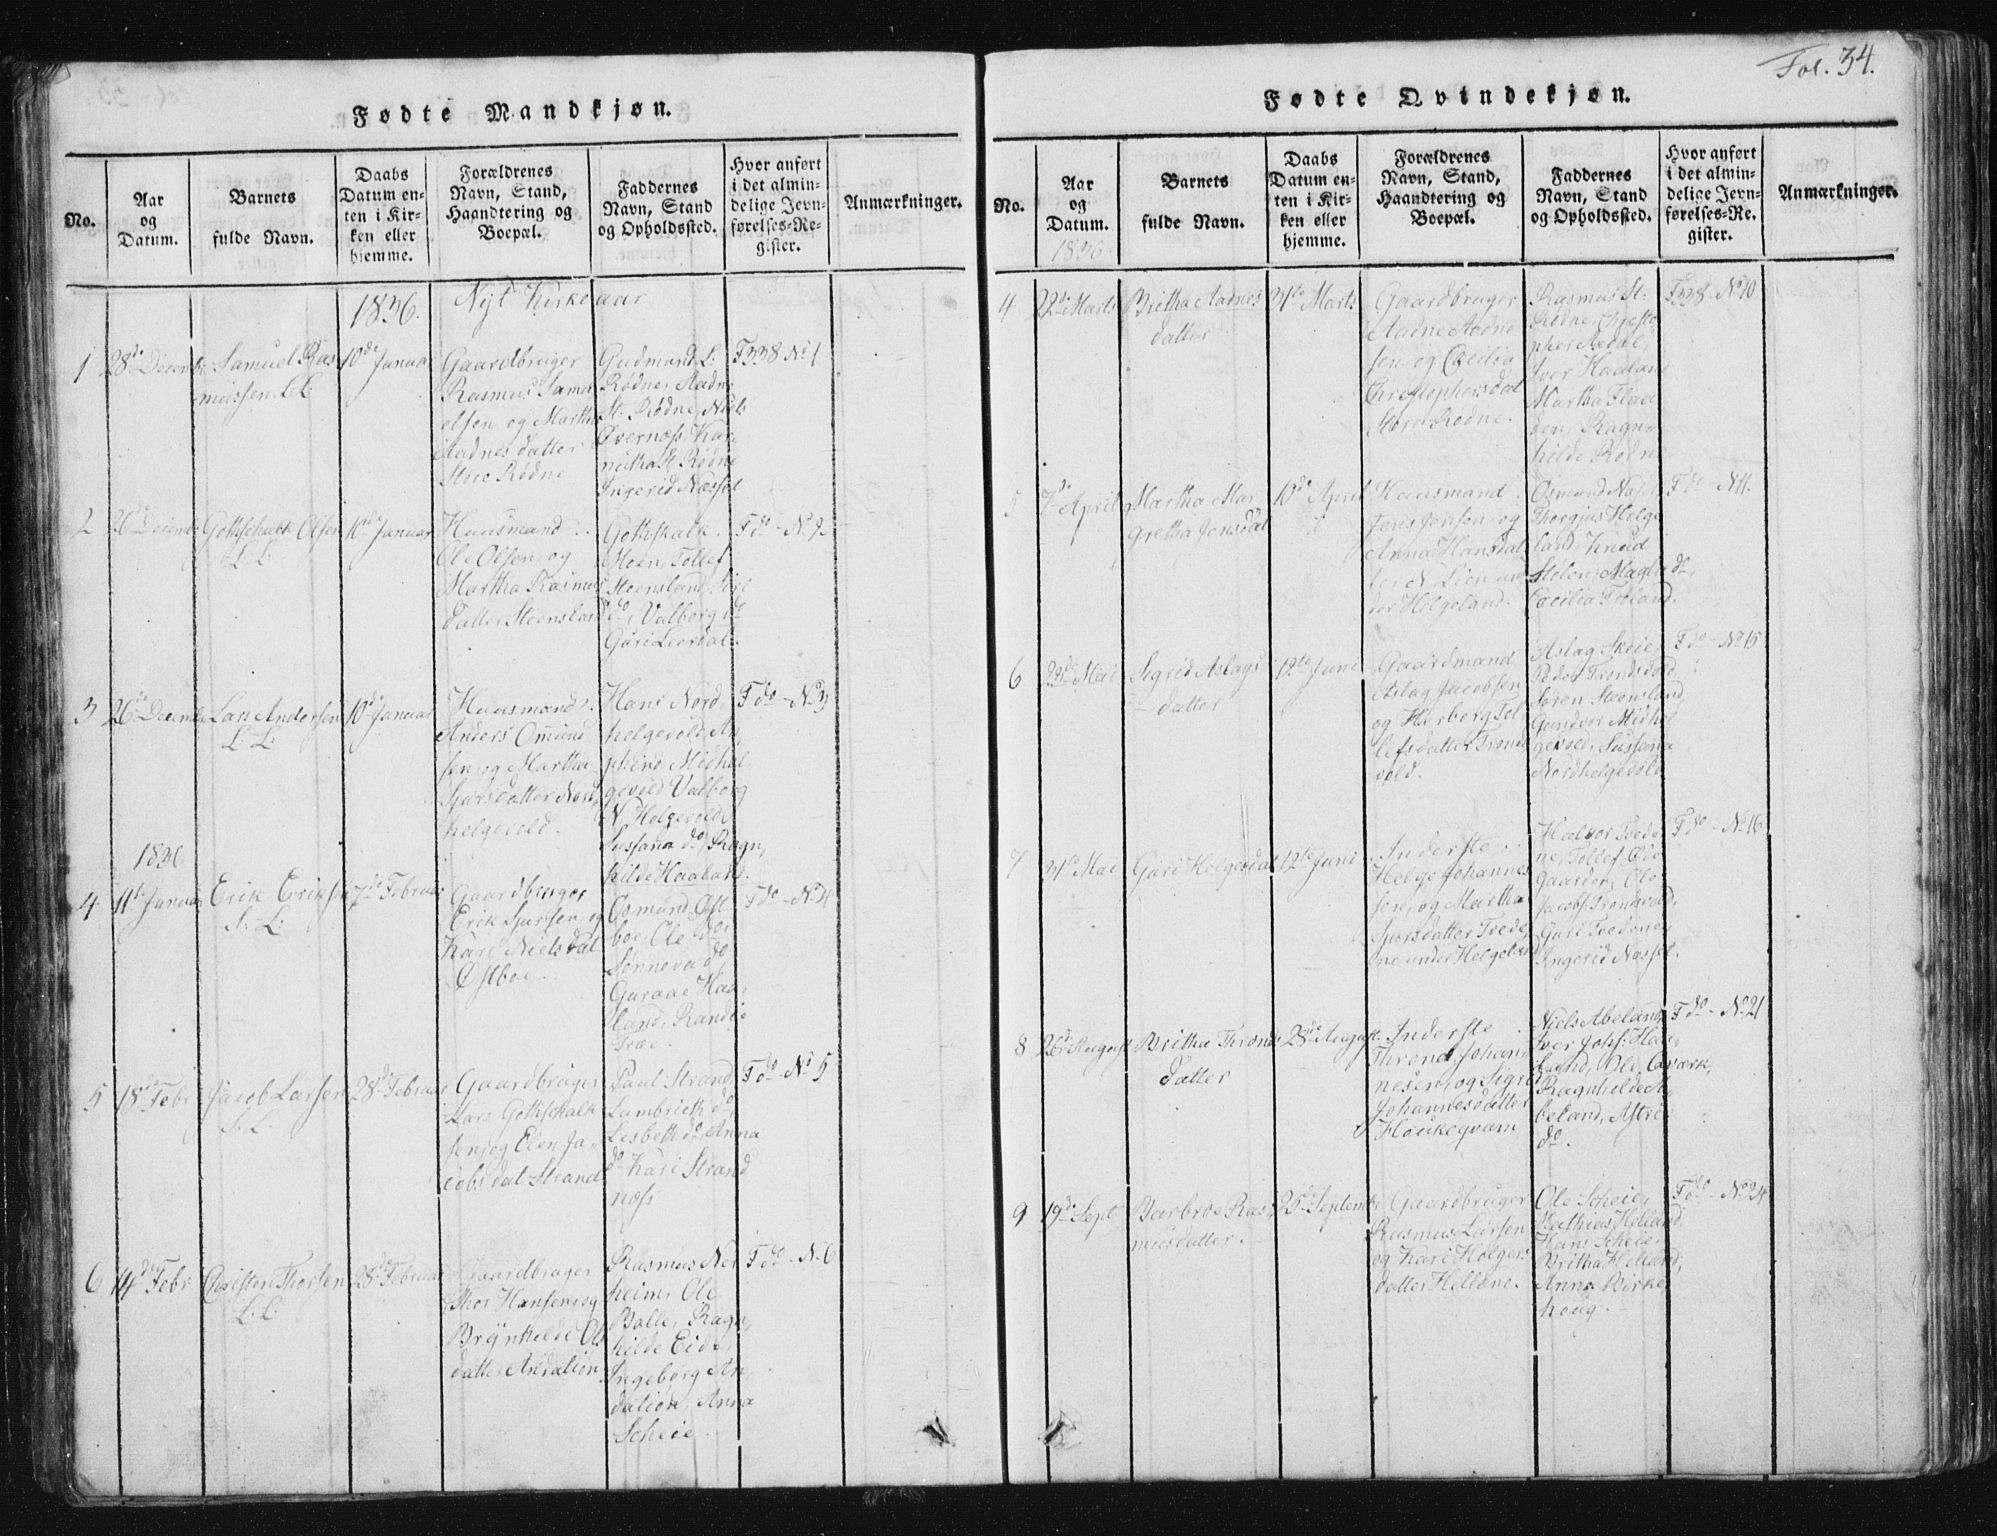 Fol. 34.
Fødte Mandkjøn.
No.
Aar
og
Datum.
Barnets
fulde Navn.
Daabs
Datum en-
ten i Kir-
ken eller
hjemme.
Forældrenes
Navn, Stand,
Haandtering og
Boepæl.
Faddernes
Navn, Stand
og Opholdssted.
Hvor anført
i det almin-
delige Jevn-
førelses-Re-
gister.
Anmærkninger.
1836. Nyt Kirkeaar
1
28de Decembr
Samuel Ras
mussen. L.L.
10de Januar
Gaardbruger
Rasmus Samu
elsen og Martha
Aadnesdatter
Store Rødne
Gudmund L:
Rødne, Aadne
St: Rødne, Niels
Øvernæss,
St. Rødne
Ingerid Næssel
F 338 No 1
2
Gothschalk Olsen
L: L:
10de Januar
Huusmand
Ole Olsen og
Martha Rasmus
datter Steensland
Gothskalk
Moen, Tollef
Steensland,
do, Valborg do
Guri Leerdal.
F do - No 2
3
26de Decemb
Lars Andersen
L: L:
10de Januar
Huusmand
Anders Omund
sen og Martha
Sjursdatter Nord
helgevold.
Hans Nord
helgevold,
Midhel
gevold Valborg
N. Helgevold
Susfana do, Ragn,
hilde Haaland.
F do - No 3
1836
4
11te Januar
Erik Eriksen
L: L:
7de Februar
Gaardbruger
Erik Sjursen og
Kari Nielsdat
Østboe.
Osmund Øst
boe, Ole do,
Sønneva do,
Guraae Haa,
land, Randie
Træe.
F do - No 4
5
18de Febr
Jacob Larsen
L. L:
28de Februar
Gaardbruger
Lars Gothschalk
sen og Elen Ja
cobsdat Strand
Paul Strand,
Lambrith do,
Lisbeth do, Anna
do Kari Strand
næss
F do - No 5
6
14de Febr
Christen Thorsen
L. L:
28de Februar
Gaardbruger
Thor Hansen og
Brynhilde Ols
datter Andalion
Rasmus Ner
heim, Ole
Bolle, Ragn,
hilde Eide,
Ingeborg An
dalion, Anna
Scheie.
F do - No 6
Fødte Qvindekjøn.
No.
Aar
og
Datum.
1836
Barnets
fulde Navn.
Daabs
Datum en-
ten i Kir-
ken eller
hjemme.
Forældrenes
Navn, Stand,
Haandtering og
Boepæl.
Faddernes
Navn, Stand
og Opholdssted.
Hvor anført
i det almin-
delige Jevn-
førelses-Re-
gister.
Anmærkninger.
4
22de Marts
Britha Aadnes
datter
31te Marts
Gaardbruger
Aadne Aadne
sen og Cecilia
Christophersdat
Store Rødne.
Rasmus St:
Rødne, Christo
pher Aadal,
Iver Haaland
Martha Flad
den, Ragn,
hilde Rødne
F 338 - No 10
5
7de April
Martha Mar
gretha Jonsdat
10de April
Huusmand
Jens Jonsen og
Anna Hansdat
ter N. Lien un
der Helgeland.
Osmund
Thorgjus Helge
land, Knud
do,
Cecilia
F do - N 11.
6
22de Mai
Sigrid Aslags
datter
12te Juni
Gaardmand
Aslag Jacobsen
og Herborg Tol
lefsdatter Trond
vold.
Aslag Skeie,
Peder Trondsvold,
Søren Steensland,
Gundvor Midhel
gevold, Susfana
Nordhelgevold
F do - No 15
7
31te Mai
Guri Helgesdat
12te Juni
Inderste
Helge Johannes
sen, og Martha
Sjursdatter Tvede,
ne under Helgeland
Halvor Tvede
ne, Tollef Øde
gaarden, Ole
Jacobs: Trondsvold,
Guri Tvedene,
Ingerid Næssel.
F do - No 16
8
26de August
Britha Thronds
datter
28de August
Inderste
Thrond Johan
nesen, og Sigrid
Johannesdatter
Houkeqvam
Niels Abeland,
Iver Johs: Haa
land, Ole Qværk,
Ragnhilde A
beland, Astrie
do.
F do - No 21
9
19de Sept
Barbroe Ras
musdatter.
25de Septembr
Gaardbruger
Rasmus Larsen
og Kari Helges
datter Hellene.
Ole Scheie,
Mathias Helland
Hans Scheie,
Britha Helland,
Anna Birke
houg.
F do - No 24